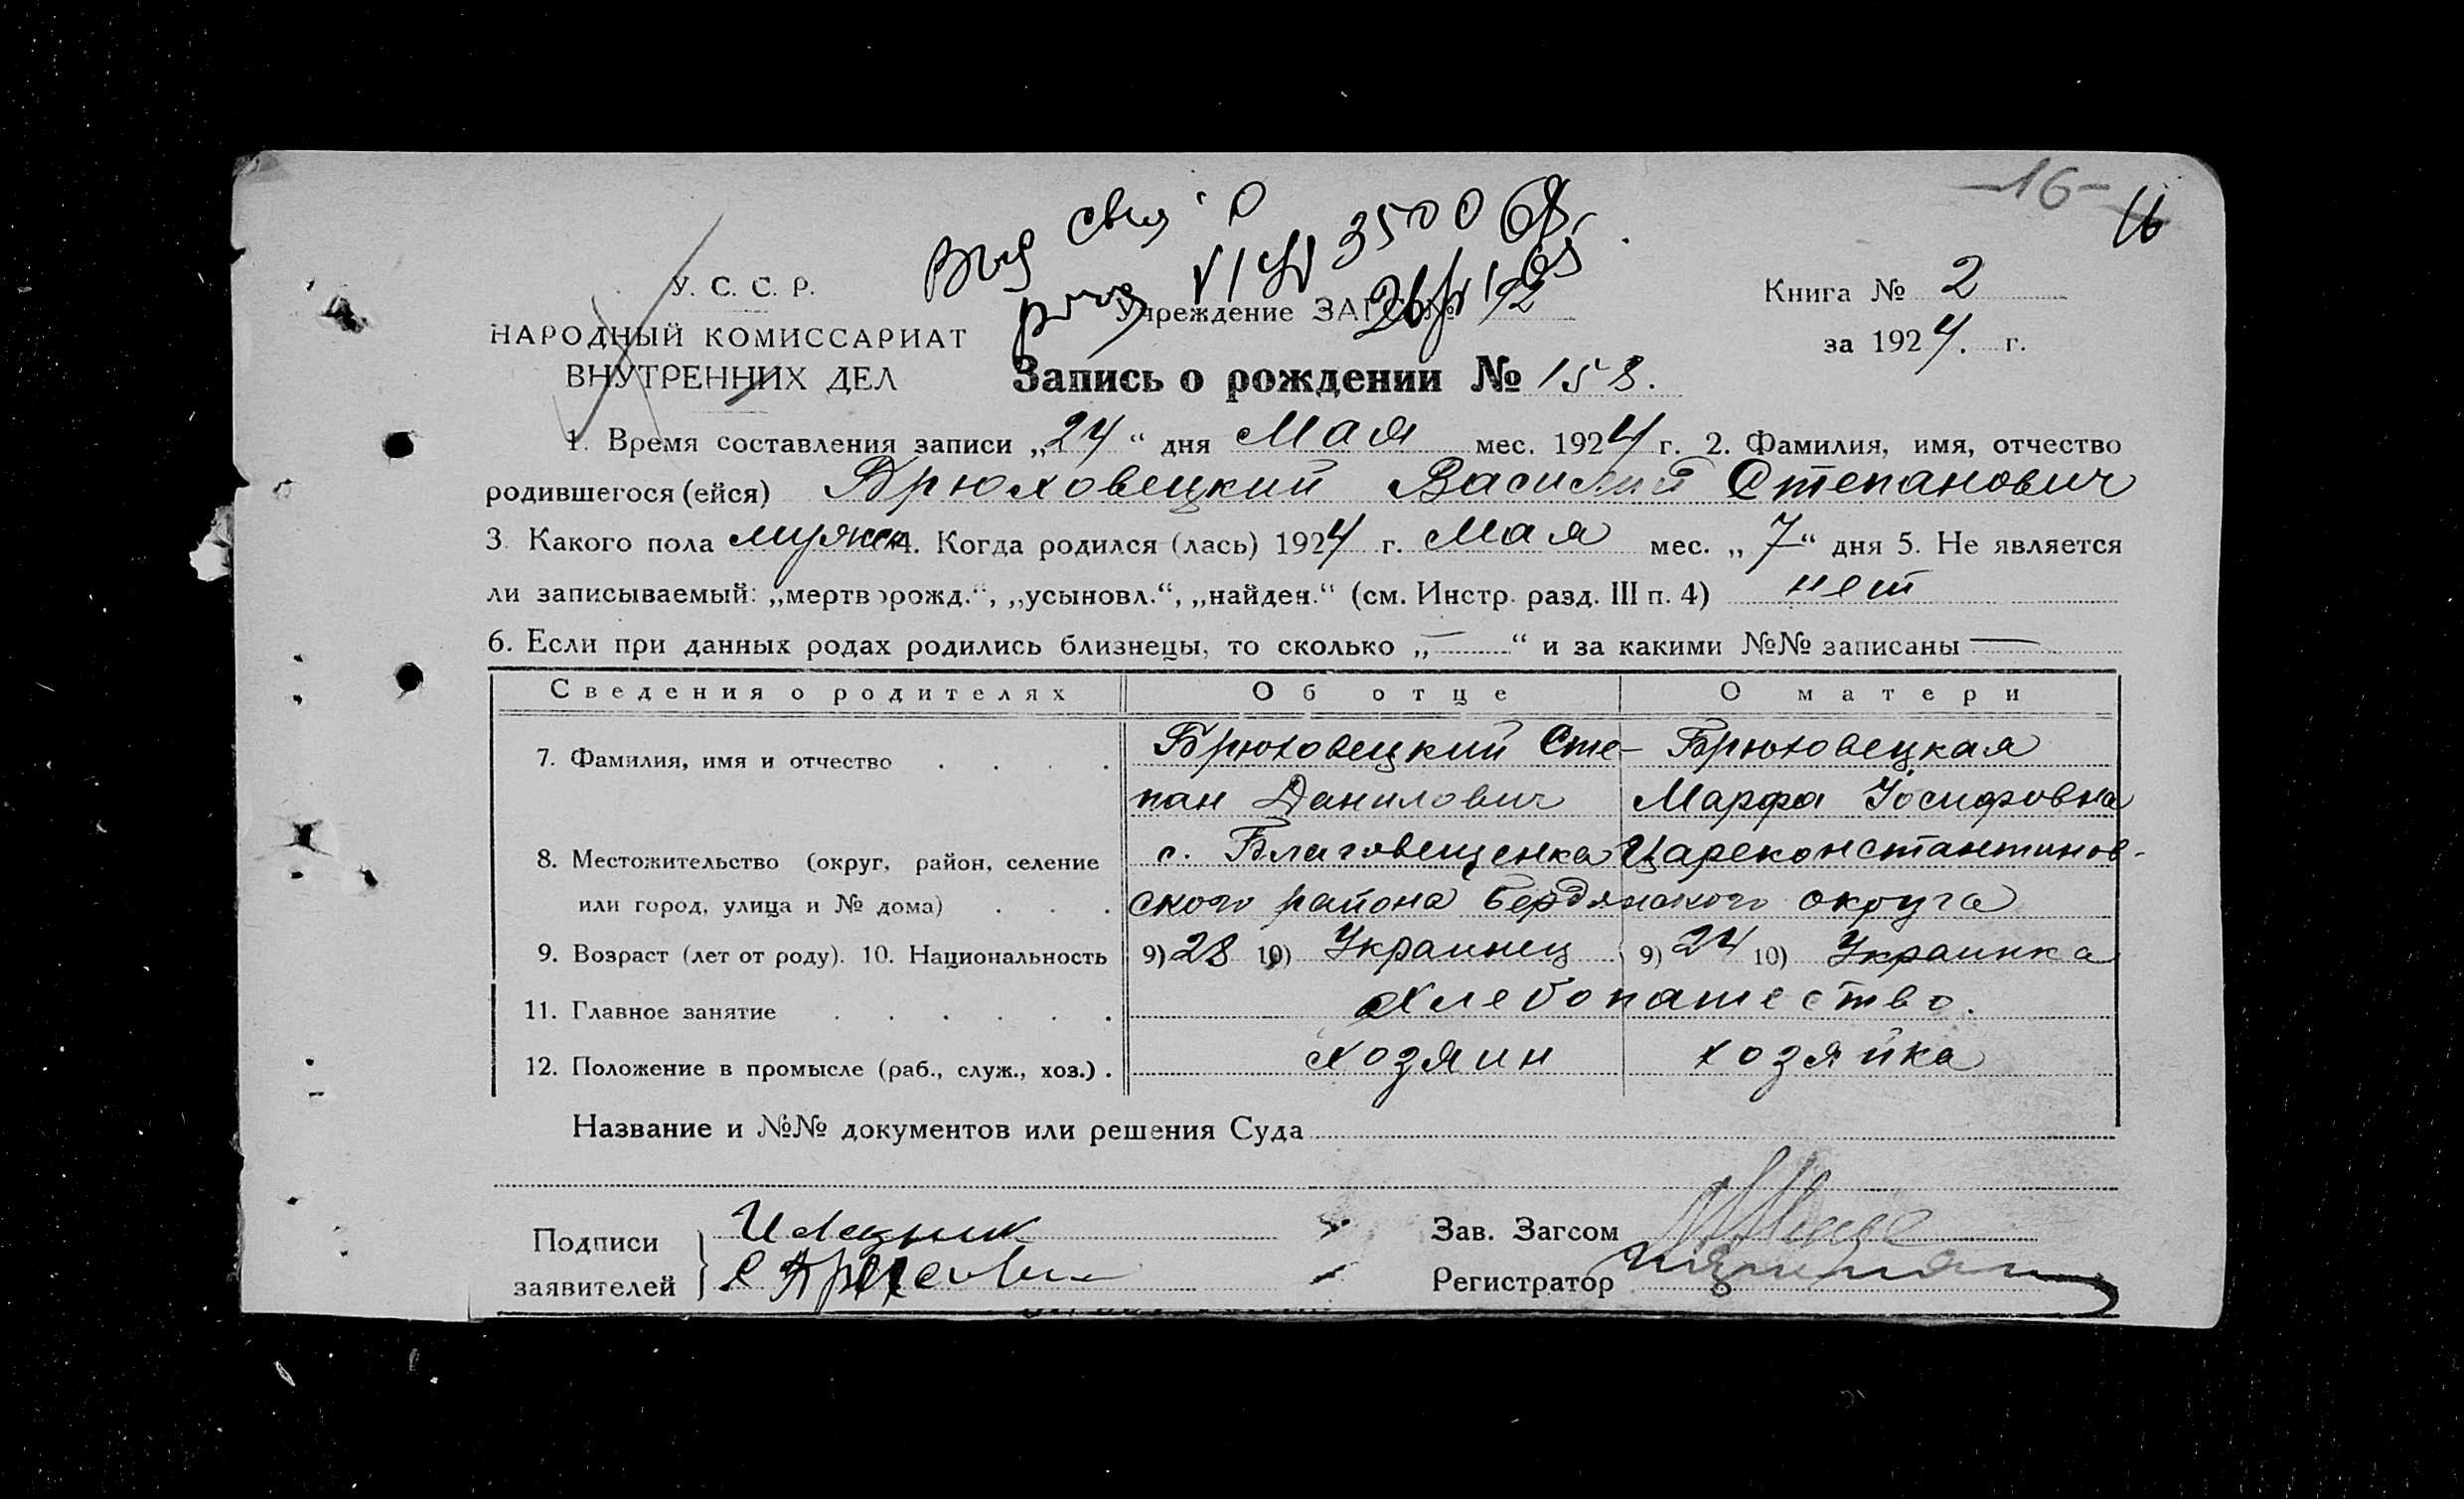 -16-
16
У. С. С. Р.
НАРОДНЫЙ КОМИССАРИАТ
ВНУТРЕННИХ ДЕЛ
3500
Учреждение ЗАГС №
Книга № 2
за 1924. г.
Запись о рождении № 158.
1. Время составления записи „24“ дня Мая мес. 1924 г. 2. Фамилия, имя, отчество
родившегося (ейся) Брюховецкий Василий Степанович
3. Какого пола мужск 4. Когда родился (лась) 1924 г. Мая мес. „7“ дня 5. Не является
ли записываемый: „мертворожд.“, „усыновл.“, „найден.“ (см. Инстр. разд. III п. 4) нет
6. Если при данных родах родились близнецы, то сколько „—“ и за какими №№ записаны —
Сведения о родителях Об отце О матери
7. Фамилия, имя и отчество . . . . Брюховецкий Сте- Брюховецкая
пан Данилович Марфа Иосифовна
8. Местожительство (округ, район, селение с. Благовещенка Цареконстантинов-
или город, улица и № дома) . . . ского района Бердянского округа
9. Возраст (лет от роду). 10. Национальность 9) 28 10) Украинец 9) 24 10) Украинка
11. Главное занятие . . . . . . Хлебопашество.
12. Положение в промысле (раб., служ., хоз.) . хозяин хозяйка
Название и №№ документов или решения Суда
Подписи
заявителей
Зав. Загсом
Регистратор